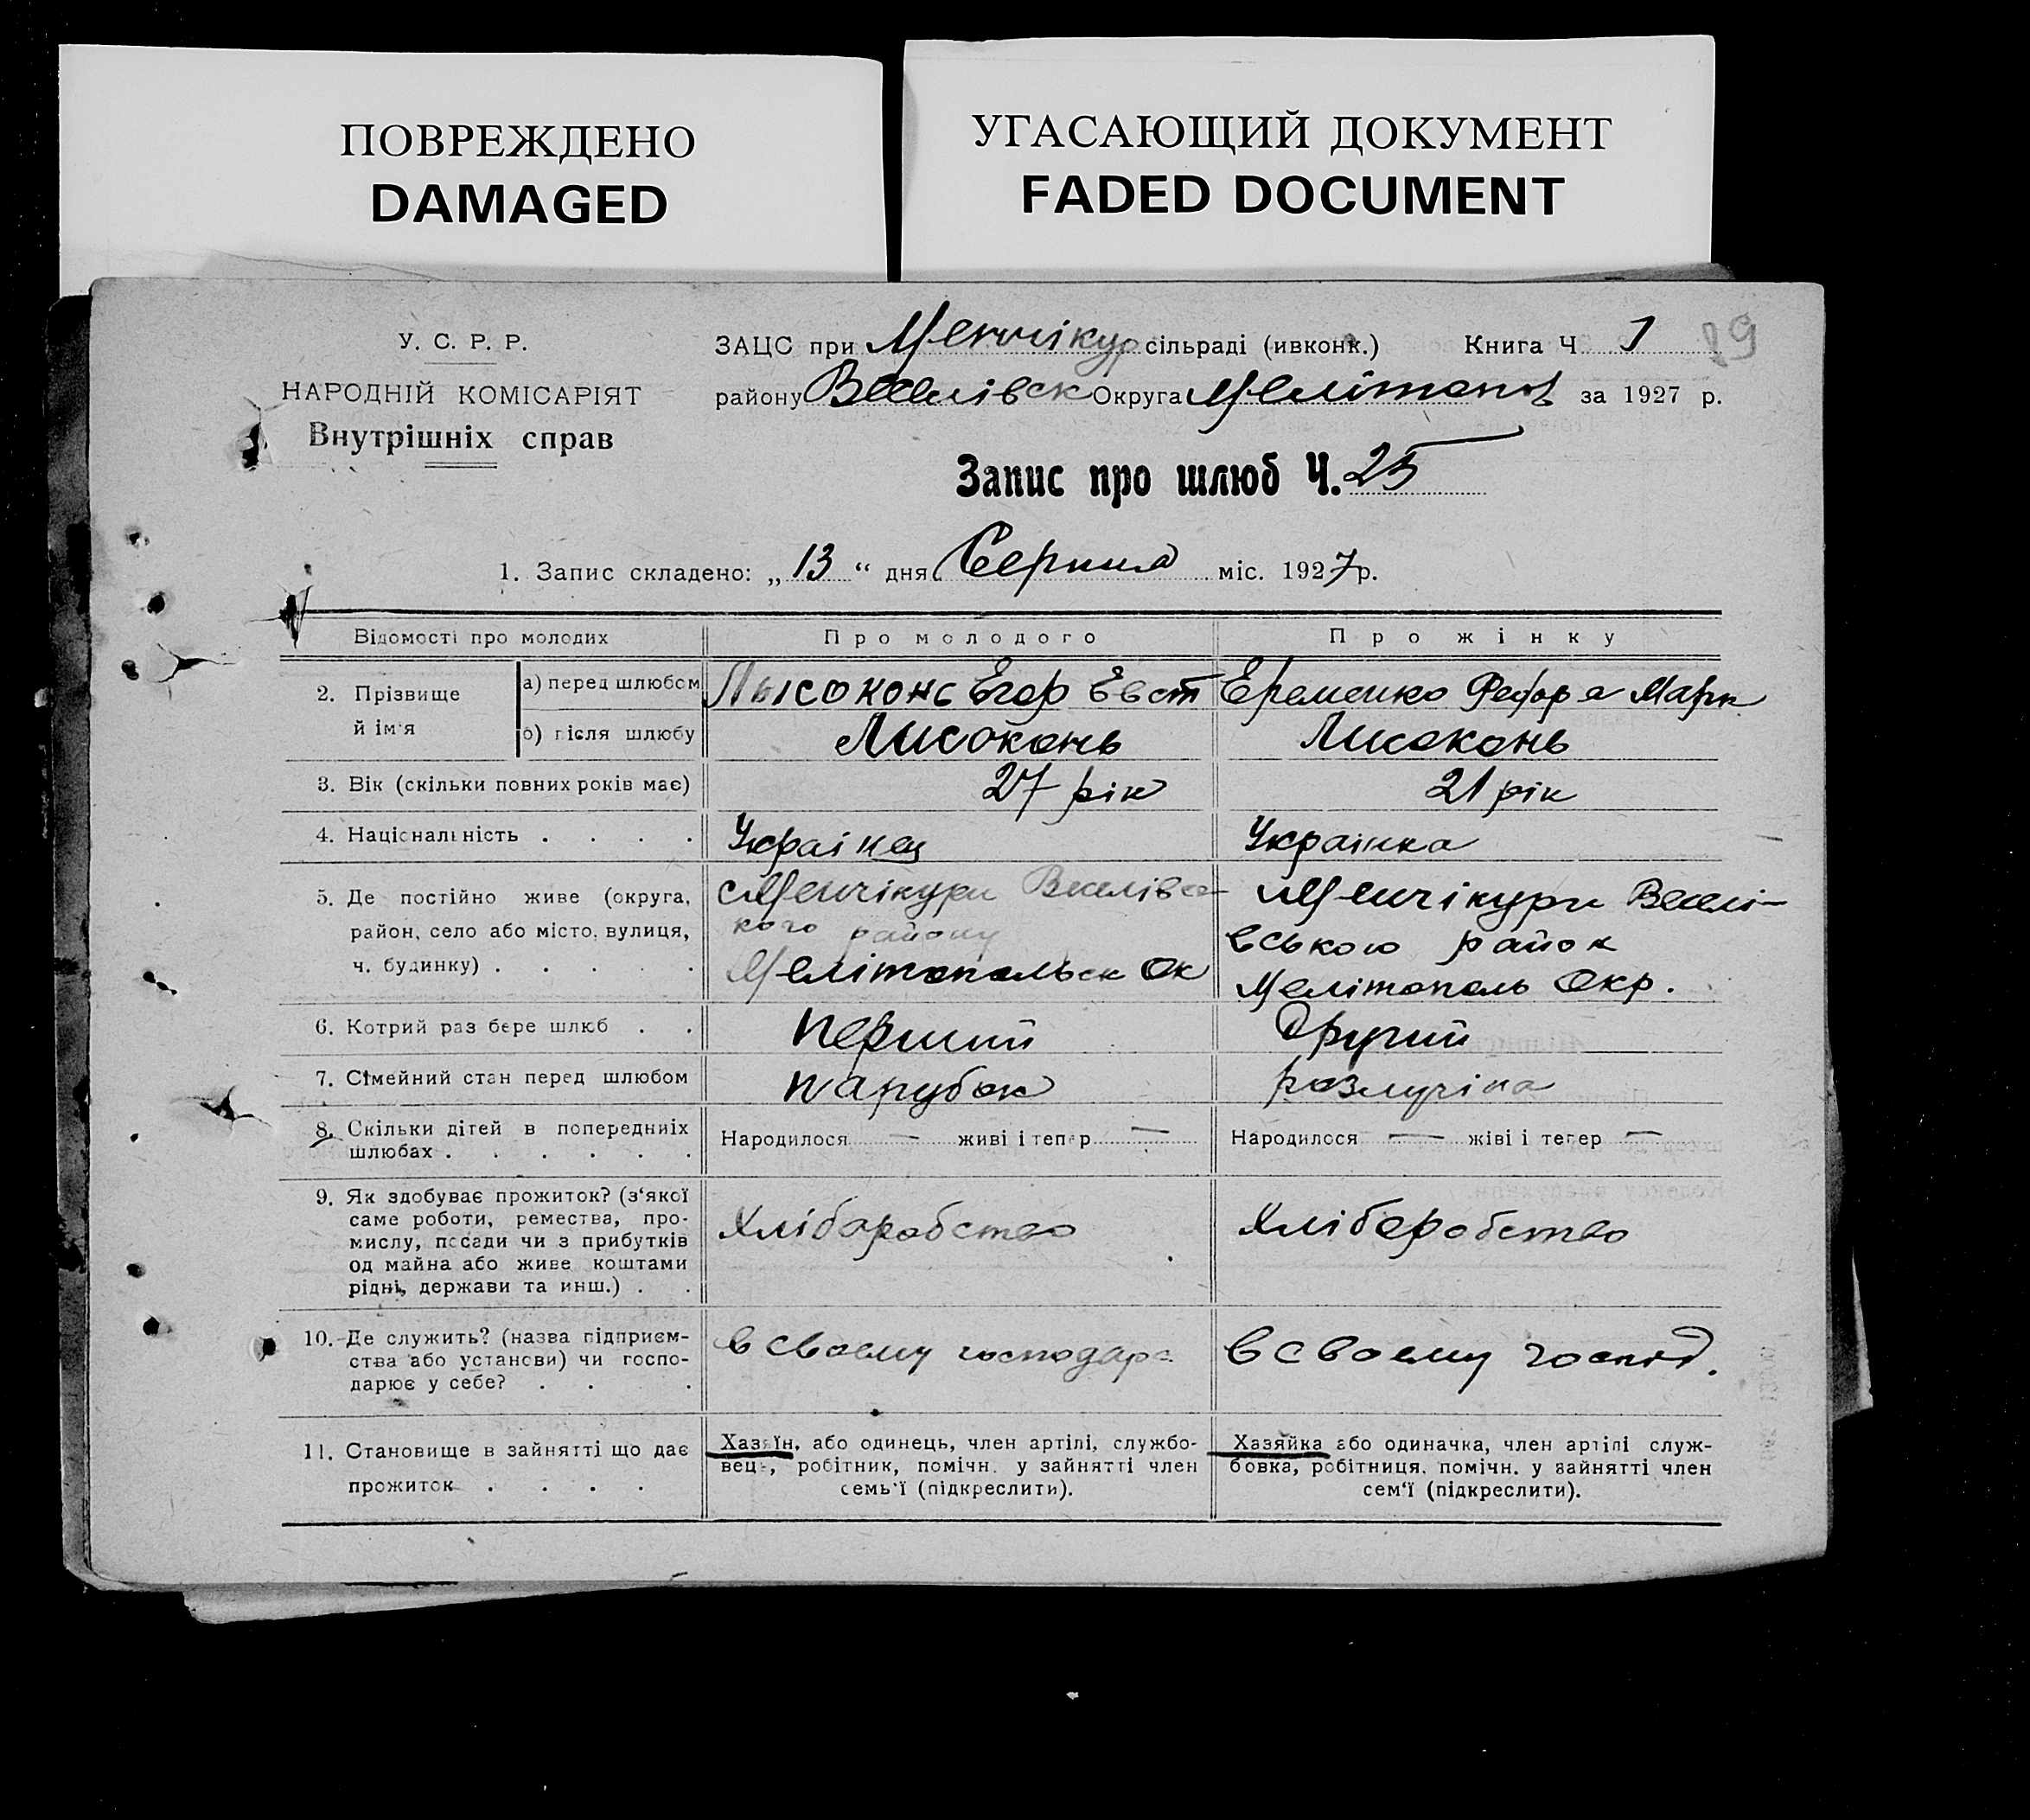 ПОВРЕЖДЕНО
DAMAGED
УГАСАЮЩИЙ ДОКУМЕНТ
FADED DOCUMENT
У. С. Р. Р.
НАРОДНІЙ КОМІСАРІЯТ
Внутрішніх справ
ЗАЦС при Менчікур сільраді (ивконк.) Книга Ч 1 19
району Веселівск Округа Мелітопол за 1927 р.
Запис про шлюб Ч. 25
1. Запис складено: „ 13 “ дня Серпня міс. 1927 р.
Відомості про молодих Про молодого Про жінку
2. Прізвище й ім'я
а) перед шлюбом Лысоконь Егор Евст Еременко Федора Марк
б) після шлюбу Лисоконь Лисоконь
3. Вік (скільки повних років має) 27 рік 21 рік
4. Національність . . . . Українец Українка
5. Де постійно живе (округа,
район, село або місто, вулиця,
ч. будинку) . . . . .
с Менчікури Веселівсь-
кого району
Мелітопольск Ок
Менчікури Веселі-
вського район
Мелітополь Окр.
6. Котрий раз бере шлюб . . Перший Другий
7. Сімейний стан перед шлюбом парубок розлучіна
8. Скільки дітей в попередниіх
шлюбах . . . . . .
Народилося — живі і тепер —
Народилося — жіві і тепер —
9. Як здобуває прожиток? (з‘якої
саме роботи, ремества, про-
мислу, посади чи з прибутків
од майна або живе коштами
рідні, держави та инш.) . .
Хліборобство
Хліборобство
10. Де служить? (назва підприєм-
ства або установи) чи госпо-
дарює у себе? . . .
в своему господарс
в своему госпід.
11. Становище в зайнятті що дає
прожиток . . . .
Хазяїн, або одинець, член артілі, службо-
вець, робітник, помічн. у зайнятті член
семь‘ї (підкреслити).
Хазяйка або одиначка, член артілі служ-
бовка, робітниця, помічн. у зайнятті член
сем‘ї (підкреслити).